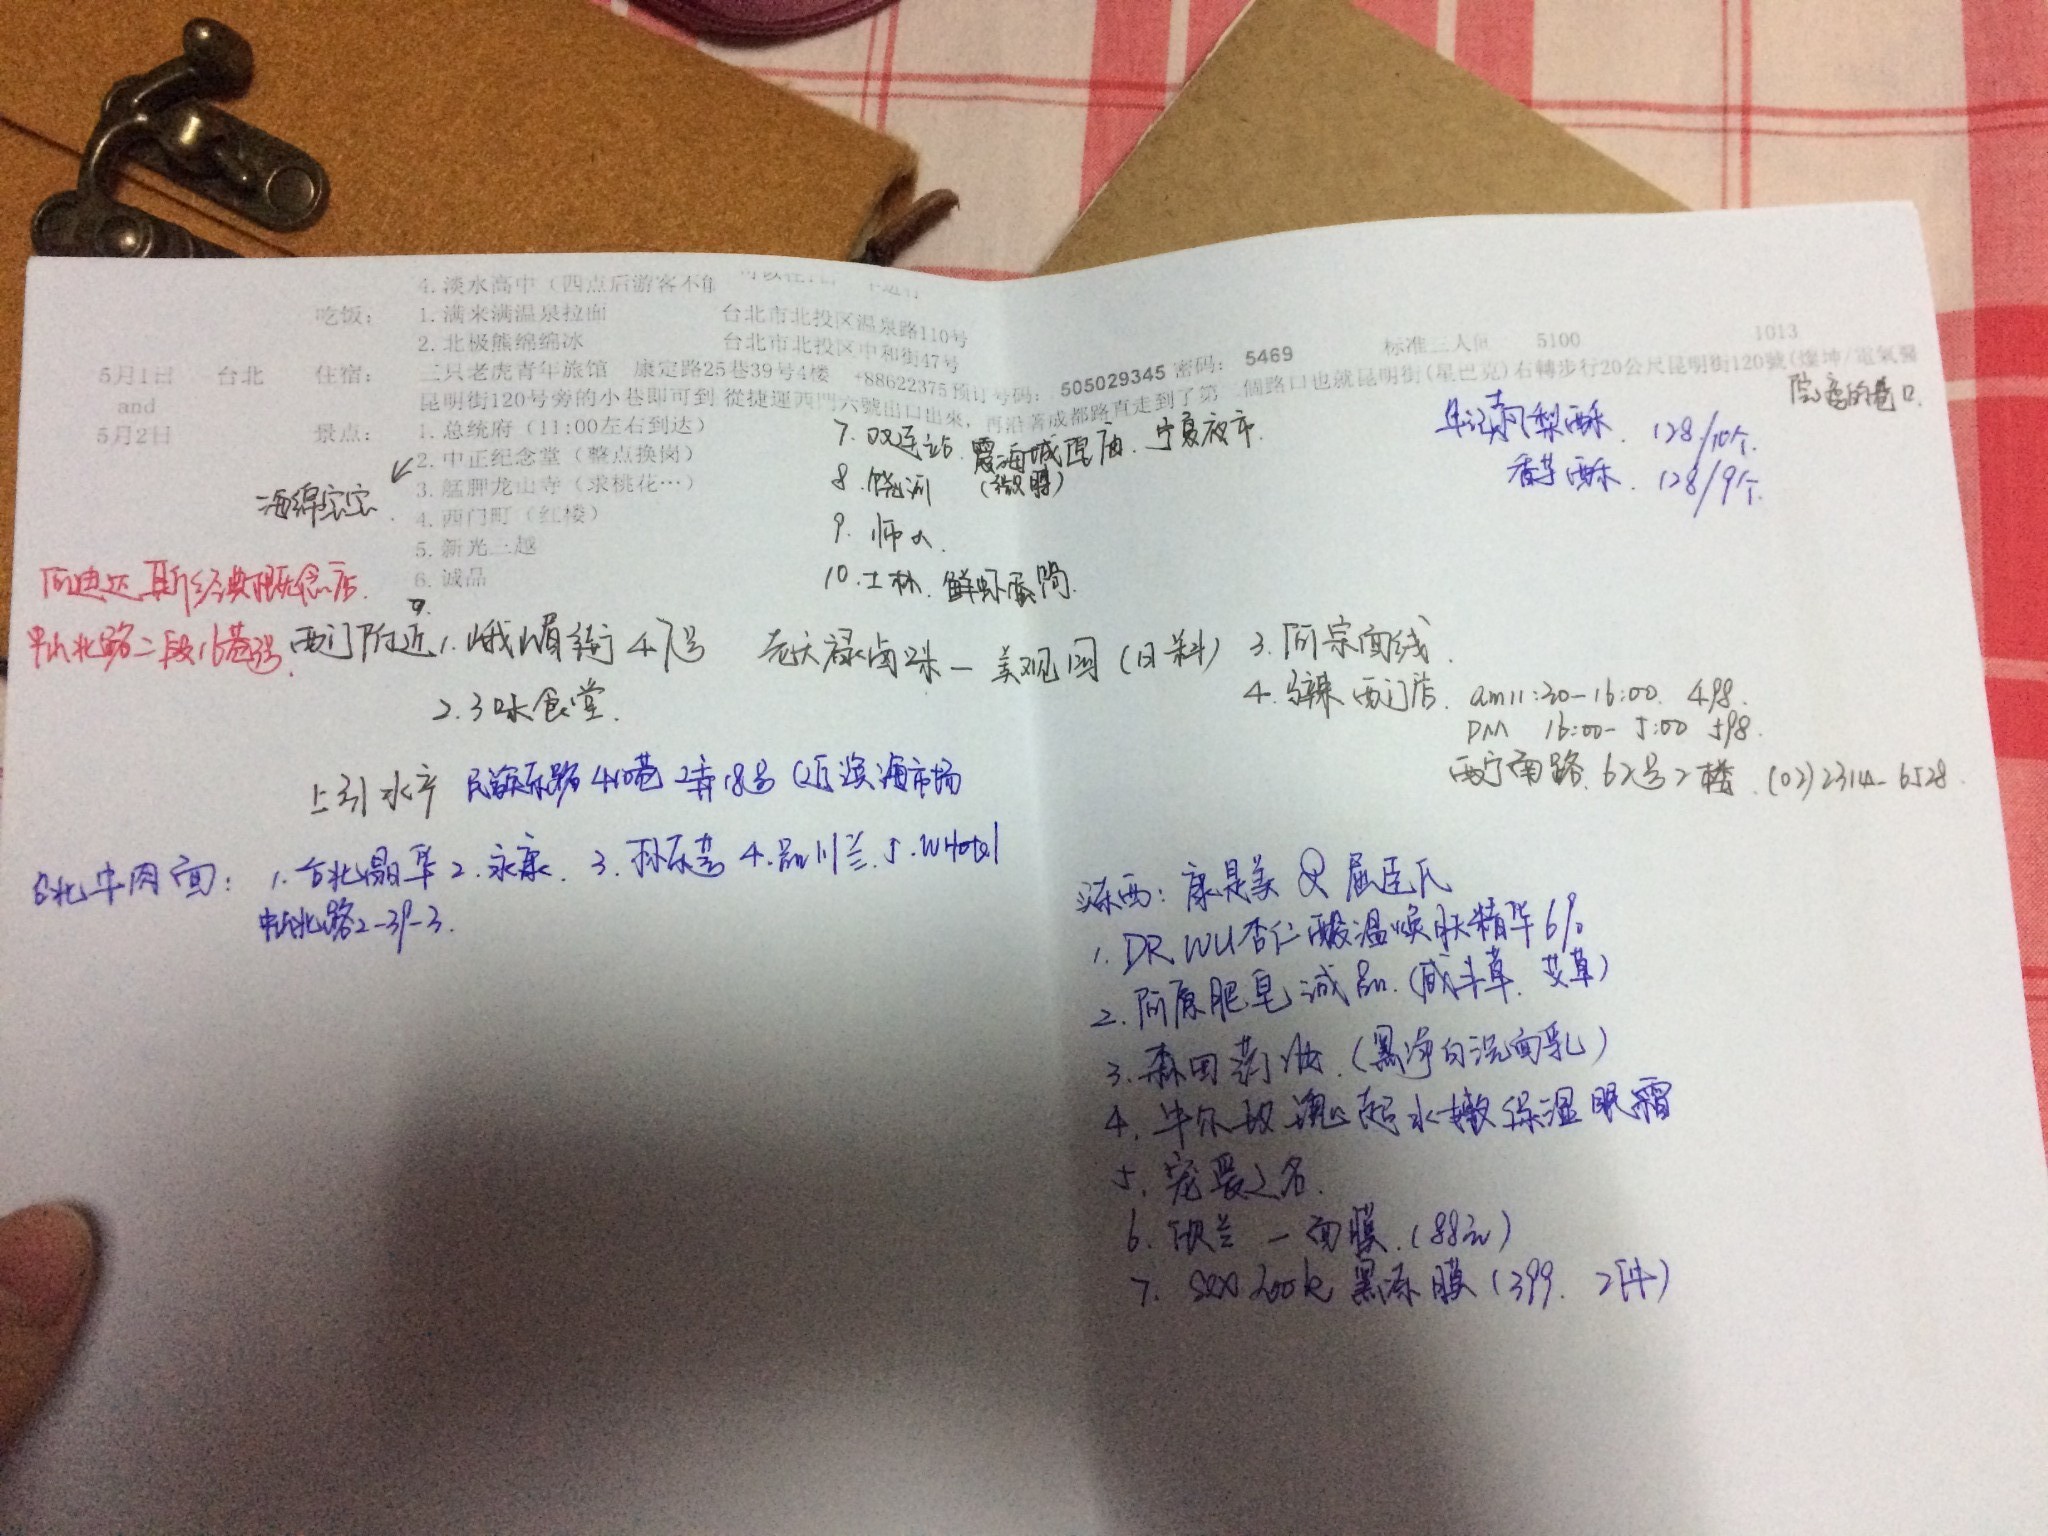 4. 淡水高中（四点后游客不能
吃饭： 1. 满来满温泉拉面 台北市北投区温泉路110号
2. 北极熊绵绵冰 台北市北投区中和街47号
5月1日 台北 住宿： 二只老虎青年旅馆 康定路25巷39号4楼 +88622375 预订号码： 505029345 密码： 5469 标准三人间 5100 1013
and 昆明街120号旁的小巷即可到 從捷運西門六號出口出來，再沿著成都路直走到了第二個路口也就昆明街(星巴克)右轉步行20公尺昆明街120號(燦坤/電氣醫
院旁的巷口
5月2日 景点： 1. 总统府（11:00左右到达）
2. 中正纪念堂（整点换岗）
3. 艋舺龙山寺（求桃花…）
海绵宝宝
4. 西门町（红楼）
5. 新光三越
6. 诚品
7. 双连站 霞海城隍庙 宁夏夜市
8. 饶河
9. 师大
10. 士林 鲜虾蛋
凤梨酥 128/10个
酥 128/9个
阿迪达斯经典概念店
中山北路二段16巷
西门附近 1. 峨嵋街47号 老天禄卤味 — 美观园（日料） 3. 阿宗面线
2. 3味食堂
4. 马辣 西门店 am11:30-16:00 498
PM 16:00-5:00 598
西宁南路 62号2楼 (02)2314-6528
上引水产 民族东路410巷2弄18号（近滨海市场
台北牛肉面： 1. 台北晶华 2. 永康 3. 孙东宝 4. 品川兰 5. W Hotel
中山北路2-39-3
买东西： 康是美 & 屈臣氏
1. DR WU杏仁酸温焕肤精华6%
2. 阿原肥皂 诚品 （ 艾草）
3. 森田药妆（黑净白洗面乳）
4. 牛尔 玫瑰 水嫩保湿眼霜
5. 宠爱之名
6. 欣兰 — 面膜（88元）
7. sexylook 黑 膜（399 2件）